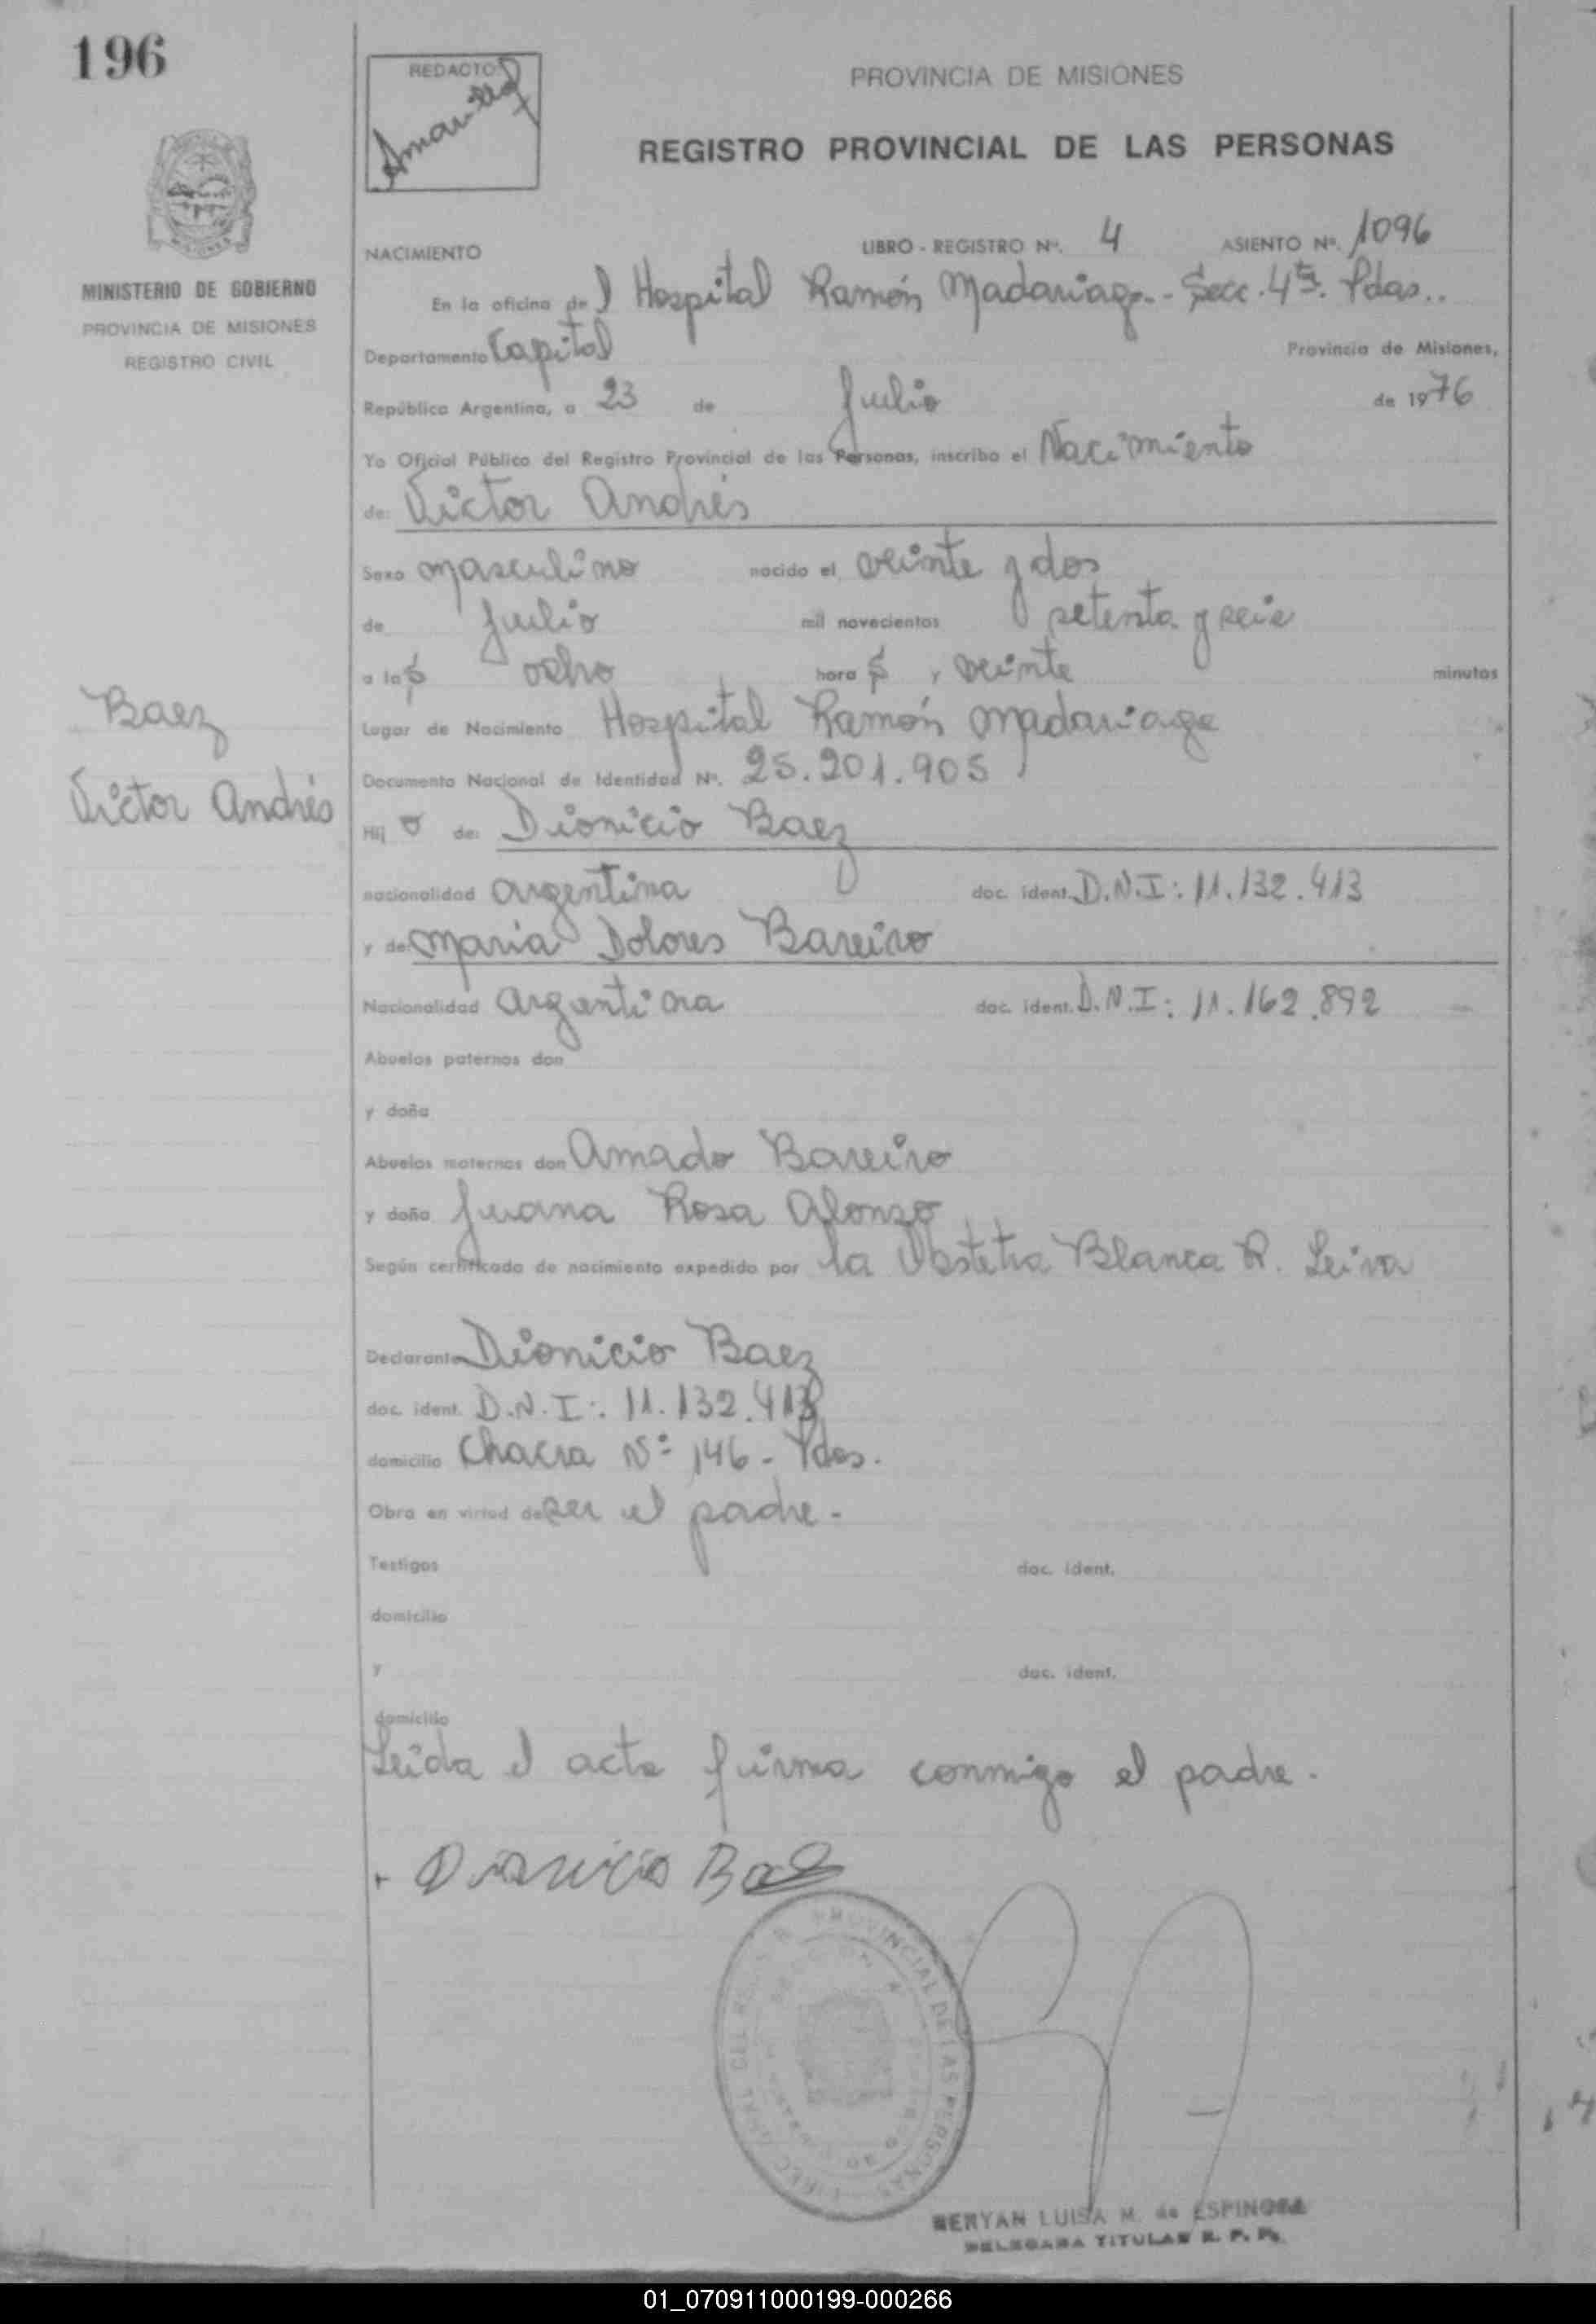 196
REDACTO:
PROVINCIA DE MISIONES
REGISTRO PROVINCIAL DE LAS PERSONAS
MISIONES
MINISTERIO DE GOBIERNO
PROVINCIA DE MISIONES
REGISTRO CIVIL
NACIMIENTO LIBRO - REGISTRO Nº. 4 ASIENTO Nº. 1096
En la oficina del Hospital Ramón Madariaga - Secc. 4ta. Pdas..
Departamento Capital Provincia de Misiones,
República Argentina, a 23 de Julio de 1976
Yo Oficial Público del Registro Provincial de las Personas, inscribo el Nacimiento
de: Victor Andrés
Sexo masculino nacido el veinte y dos
de Julio mil novecientos setenta y seis
a las ocho horas y veinte minutos
Lugar de Nacimiento Hospital Ramón Madariaga
Baez
Victor Andrés
Documento Nacional de Identidad Nº. 25.201.905
Hijo de: Dionicio Baez
nacionalidad argentina doc. ident. D.N.I: 11.132.413
y de: Maria Dolores Bareiro
Nacionalidad Argentina doc. ident. D.N.I: 11.162.892
Abuelos paternos don
y doña
Abuelos maternos don Amado Bareiro
y doña Juana Rosa Alonzo
Según certificado de nacimiento expedido por la Obstetra Blanca R. Leiva
Declarante Dionicio Baez
doc. ident. D.N.I: 11.132.413
domicilio Chacra Nº 146 - Pdas.
Obra en virtud de ser el padre.-
Testigos doc. ident.
domicilio
y doc. ident.
domicilio
Leida el acta firma conmigo el padre.
Dionicio Baez
PROVINCIAL DE LAS PERSONAS
LUISA M. de ESPINOSA
DELEGADA TITULAR R. P. P.
01_070911000199-000266